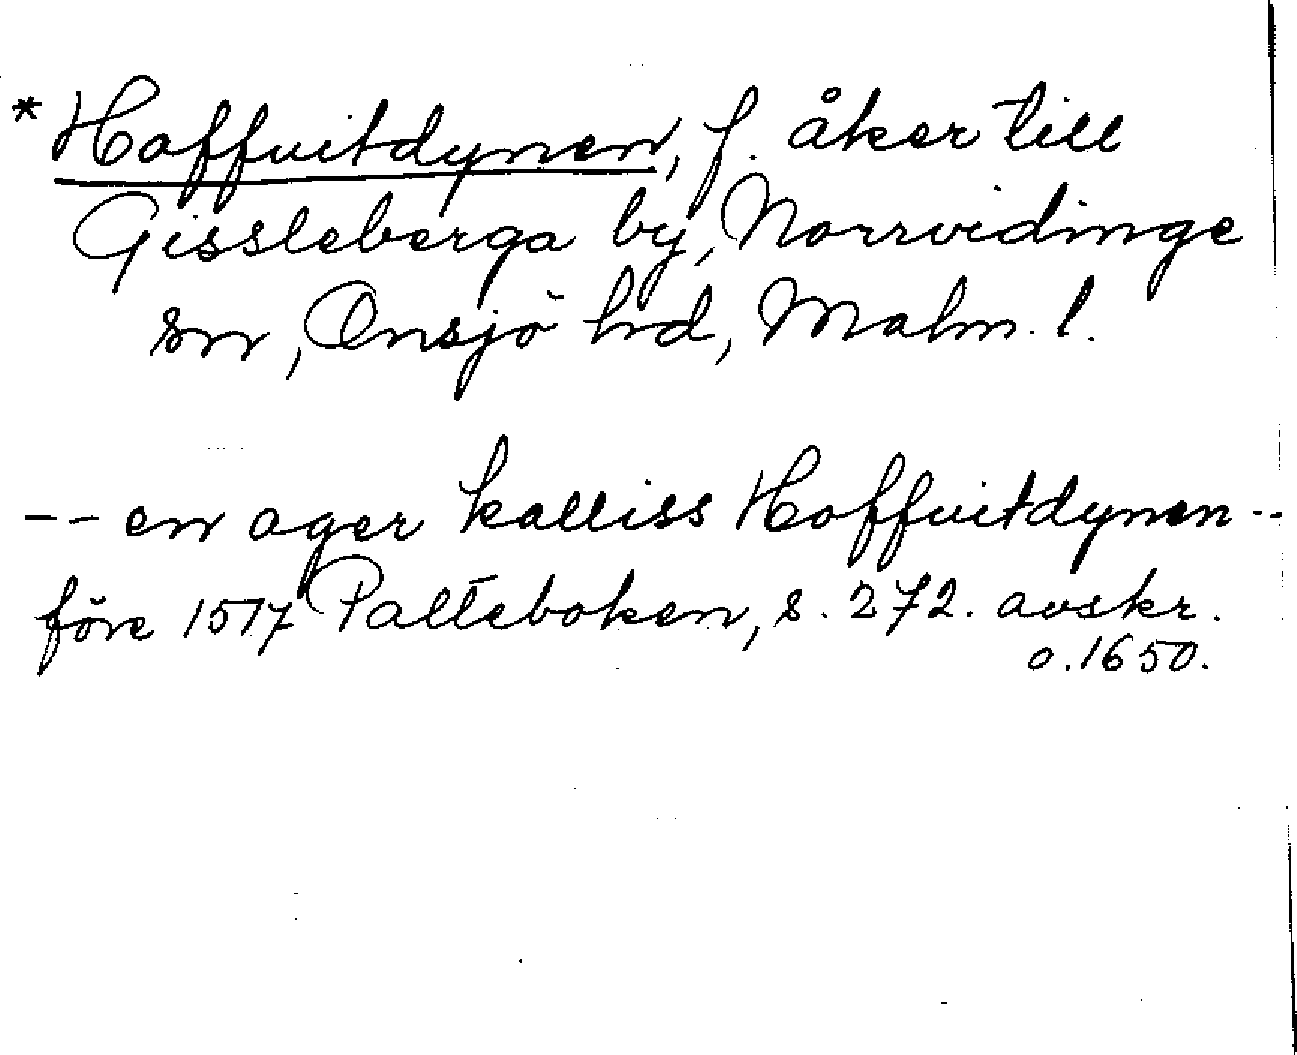 * Hoffuitdynen, f. åker till
Gissleberga by, Norrvidinge
sn, Onsjö hd, Malm. l.
-- en ager kalliss Hoffuitdynen --
före 1517 Palteboken, s. 272. avskr.
o. 1650.